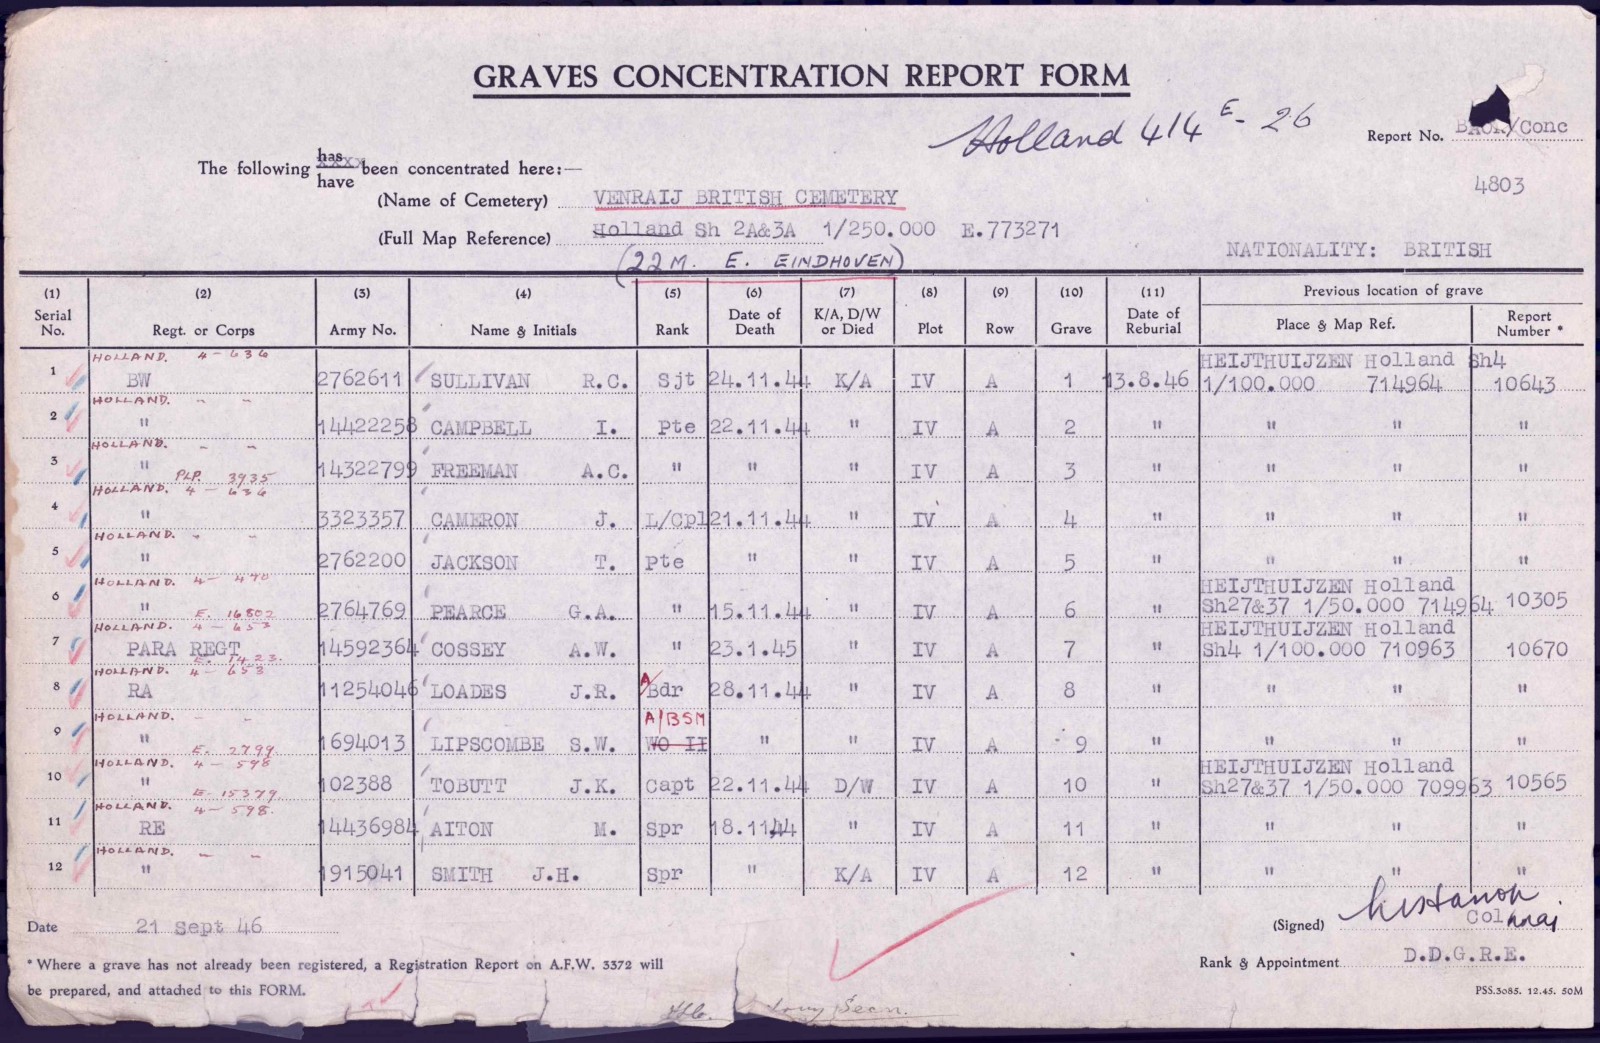 GRAVES CONCENTRATION REPORT FORM
Holland 414 E- 26
Report No. BAOR/Conc
4803
The following has / have been concentrated here:—
(Name of Cemetery) VENRAIJ BRITISH CEMETERY
(Full Map Reference) Holland Sh 2A&3A 1/250.000 E.773271
(22M. E. EINDHOVEN)
NATIONALITY: BRITISH
(1) Serial No. (2) Regt. or Corps (3) Army No. (4) Name & Initials (5) Rank (6) Date of Death (7) K/A, D/W or Died (8) Plot (9) Row (10) Grave (11) Date of Reburial Previous location of grave Place & Map Ref. Report Number *
HOLLAND. 4-636 HEIJTHUIJZEN Holland Sh4
1 BW 2762611 SULLIVAN R.C. Sjt 24.11.44 K/A IV A 1 13.8.46 1/100.000 714964 10643
HOLLAND. - -
2 " 14422258 CAMPBELL I. Pte 22.11.44 " IV A 2 " " " "
HOLLAND. - -
3 " 14322799 FREEMAN A.C. " " " IV A 3 " " " "
PLP. 3935
HOLLAND. 4-636
4 " 3323357 CAMERON J. L/Cpl 21.11.44 " IV A 4 " " " "
HOLLAND. - -
5 " 2762200 JACKSON T. Pte " " IV A 5 " " " "
HOLLAND. 4-470 HEIJTHUIJZEN Holland
6 " 2764769 PEARCE G.A. " 15.11.44 " IV A 6 " Sh27&37 1/50.000 714964 10305
E. 16802
HOLLAND. 4-653 HEIJTHUIJZEN Holland
7 PARA REGT 14592364 COSSEY A.W. " 23.1.45 " IV A 7 " Sh4 1/100.000 710963 10670
E. 1423.
HOLLAND. 4-653
8 RA 11254046 LOADES J.R. A/Bdr 28.11.44 " IV A 8 " " " "
HOLLAND. - - A/BSM
9 " 1694013 LIPSCOMBE S.W. WO II " " IV A 9 " " " "
E. 2799.
HOLLAND. 4-598 HEIJTHUIJZEN Holland
10 " 102388 TOBUTT J.K. Capt 22.11.44 D/W IV A 10 " Sh27&37 1/50.000 709963 10565
E. 15379.
HOLLAND. 4-598.
11 RE 14436984 AITON M. Spr 18.11.44 " IV A 11 " " " "
HOLLAND. - -
12 " 1915041 SMITH J.H. Spr " K/A IV A 12 " " " "
Date 21 Sept 46
(Signed) Col
* Where a grave has not already been registered, a Registration Report on A.F.W. 3372 will
be prepared, and attached to this FORM.
Rank & Appointment D.D.G.R.E.
PSS.3085. 12.45. 50M